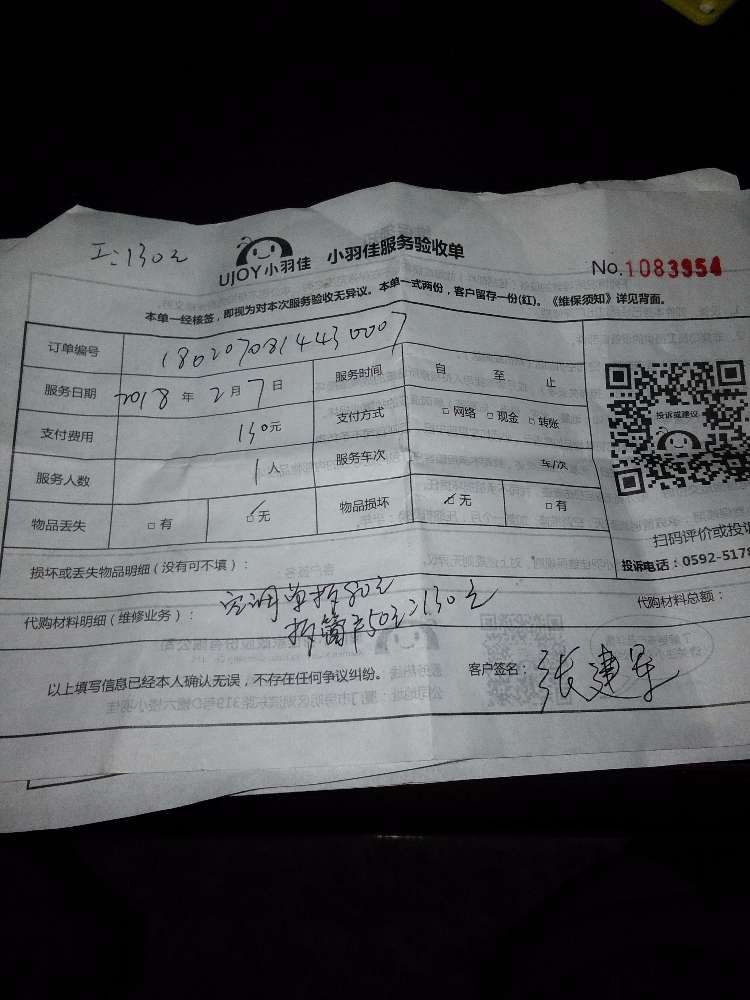 工:130元
UJOY小羽佳 小羽佳服务验收单
No.1083954
本单一经核签,即视为对本次服务验收无异议。本单一式两份,客户留存一份(红)。《维保须知》详见背面。
订单编号 1802070814430007
服务日期 2018 年 2 月 7 日 服务时间 自 至 止
支付费用 130元 支付方式 □ 网络 □ 现金 □ 转账
服务人数 1人 服务车次 车/次
物品丢失 □ 有 ☑ 无 物品损坏 ☑ 无 □ 有
投诉或建议
扫码评价或投诉
投诉电话:0592-5178
损坏或丢失物品明细(没有可不填):
代购材料明细(维修业务): 空调单拆80元
拆窗户50元=130元
代购材料总额:
以上填写信息已经本人确认无误,不存在任何争议纠纷。 客户签名: 张建军